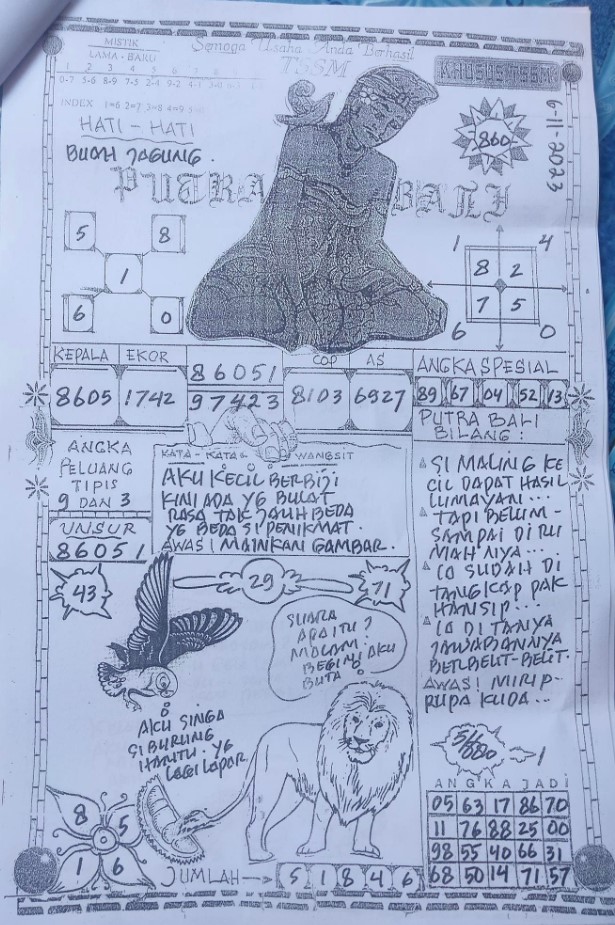 MISTIK
LAMA - BARU
Semoga Usaha Anda Berhasil
TSSM
KHUSUS TSSM
0-7 5-6 8-9 7-5 2-4 9-2
INDEX 1=6 2=7 3=8 4=9
6-11-2023
860
HATI - HATI
BUAH JAGUNG.
PUTRA BALI
5 8
1
6 0
1 4
8 2
7 5
6 0
KEPALA EKOR
8605 1742
86051
97423
COP AS
8103 6927
ANGKA SPESIAL
89 67 04 52 13
ANGKA
PELUANG
TIPIS
9 DAN 3
UNSUR
86051
KATA - KATA WANGSIT
AKU KECIL BERBIJI
KINI ADA YG BULAT
RASA TAK JAUH BEDA
YG BEDA SI PENIKMAT.
AWAS! MAINKAN GAMBAR.
PUTRA BALI
BILANG:
SI MALING KE
CIL DAPAT HASIL
LUMAYAN...
TAPI BELUM-
SAMPAI DI RU
MAH NYA...
IA SUDAH DI
TANGKAP PAK
HANSIP...
IA DI TANYA
JAWABANNYA
BERBELIT-BELIT.
AWAS! MIRIP-
RUPA KUDA...
43
29
71
SUARA
APA ITU?
MALAM.
BEGINI AKU
BUTA
AKU SINGA
SI BURUNG
HANTU. YG
LAGI LAPAR
8 5
1 6
JUMLAH
5 1 8 4 6
ANGKA JADI
05 63 17 86 70
11 76 88 25 00
98 55 40 66 31
68 50 14 71 57